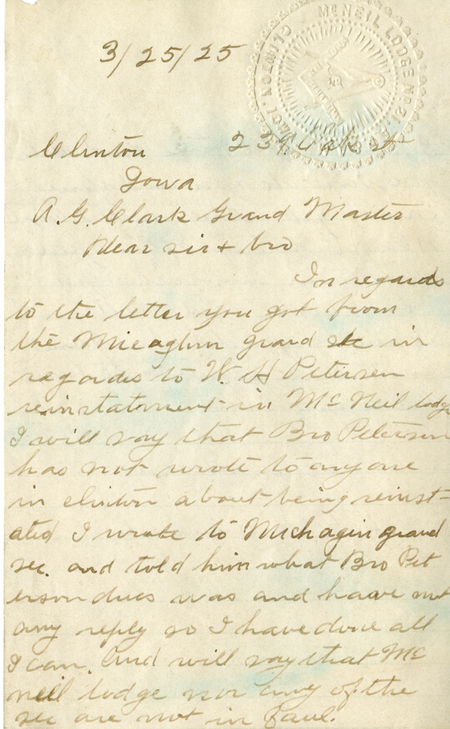 McNEIL LODGE No 21
CLINTON, IOWA
3/25/25
239 Oak St
Clinton
Iowa
A. G. Clark Grand Master
Dear sir & bro
In regards
to the letter you got from
the Micaghin grand sec in
regardes to W. H Petersen
reinstatement in McNeil lodge
I will say that Bro Petersen
has not wrote to anyone
in clinton about being reinst-
ated I wrote to Michagin grand
sec. and told him what Bro Pet
erson dues was and haave not
any reply so I have done all
I can. And will say that Mc
neil lodge nor any of the
sec are not in faul.